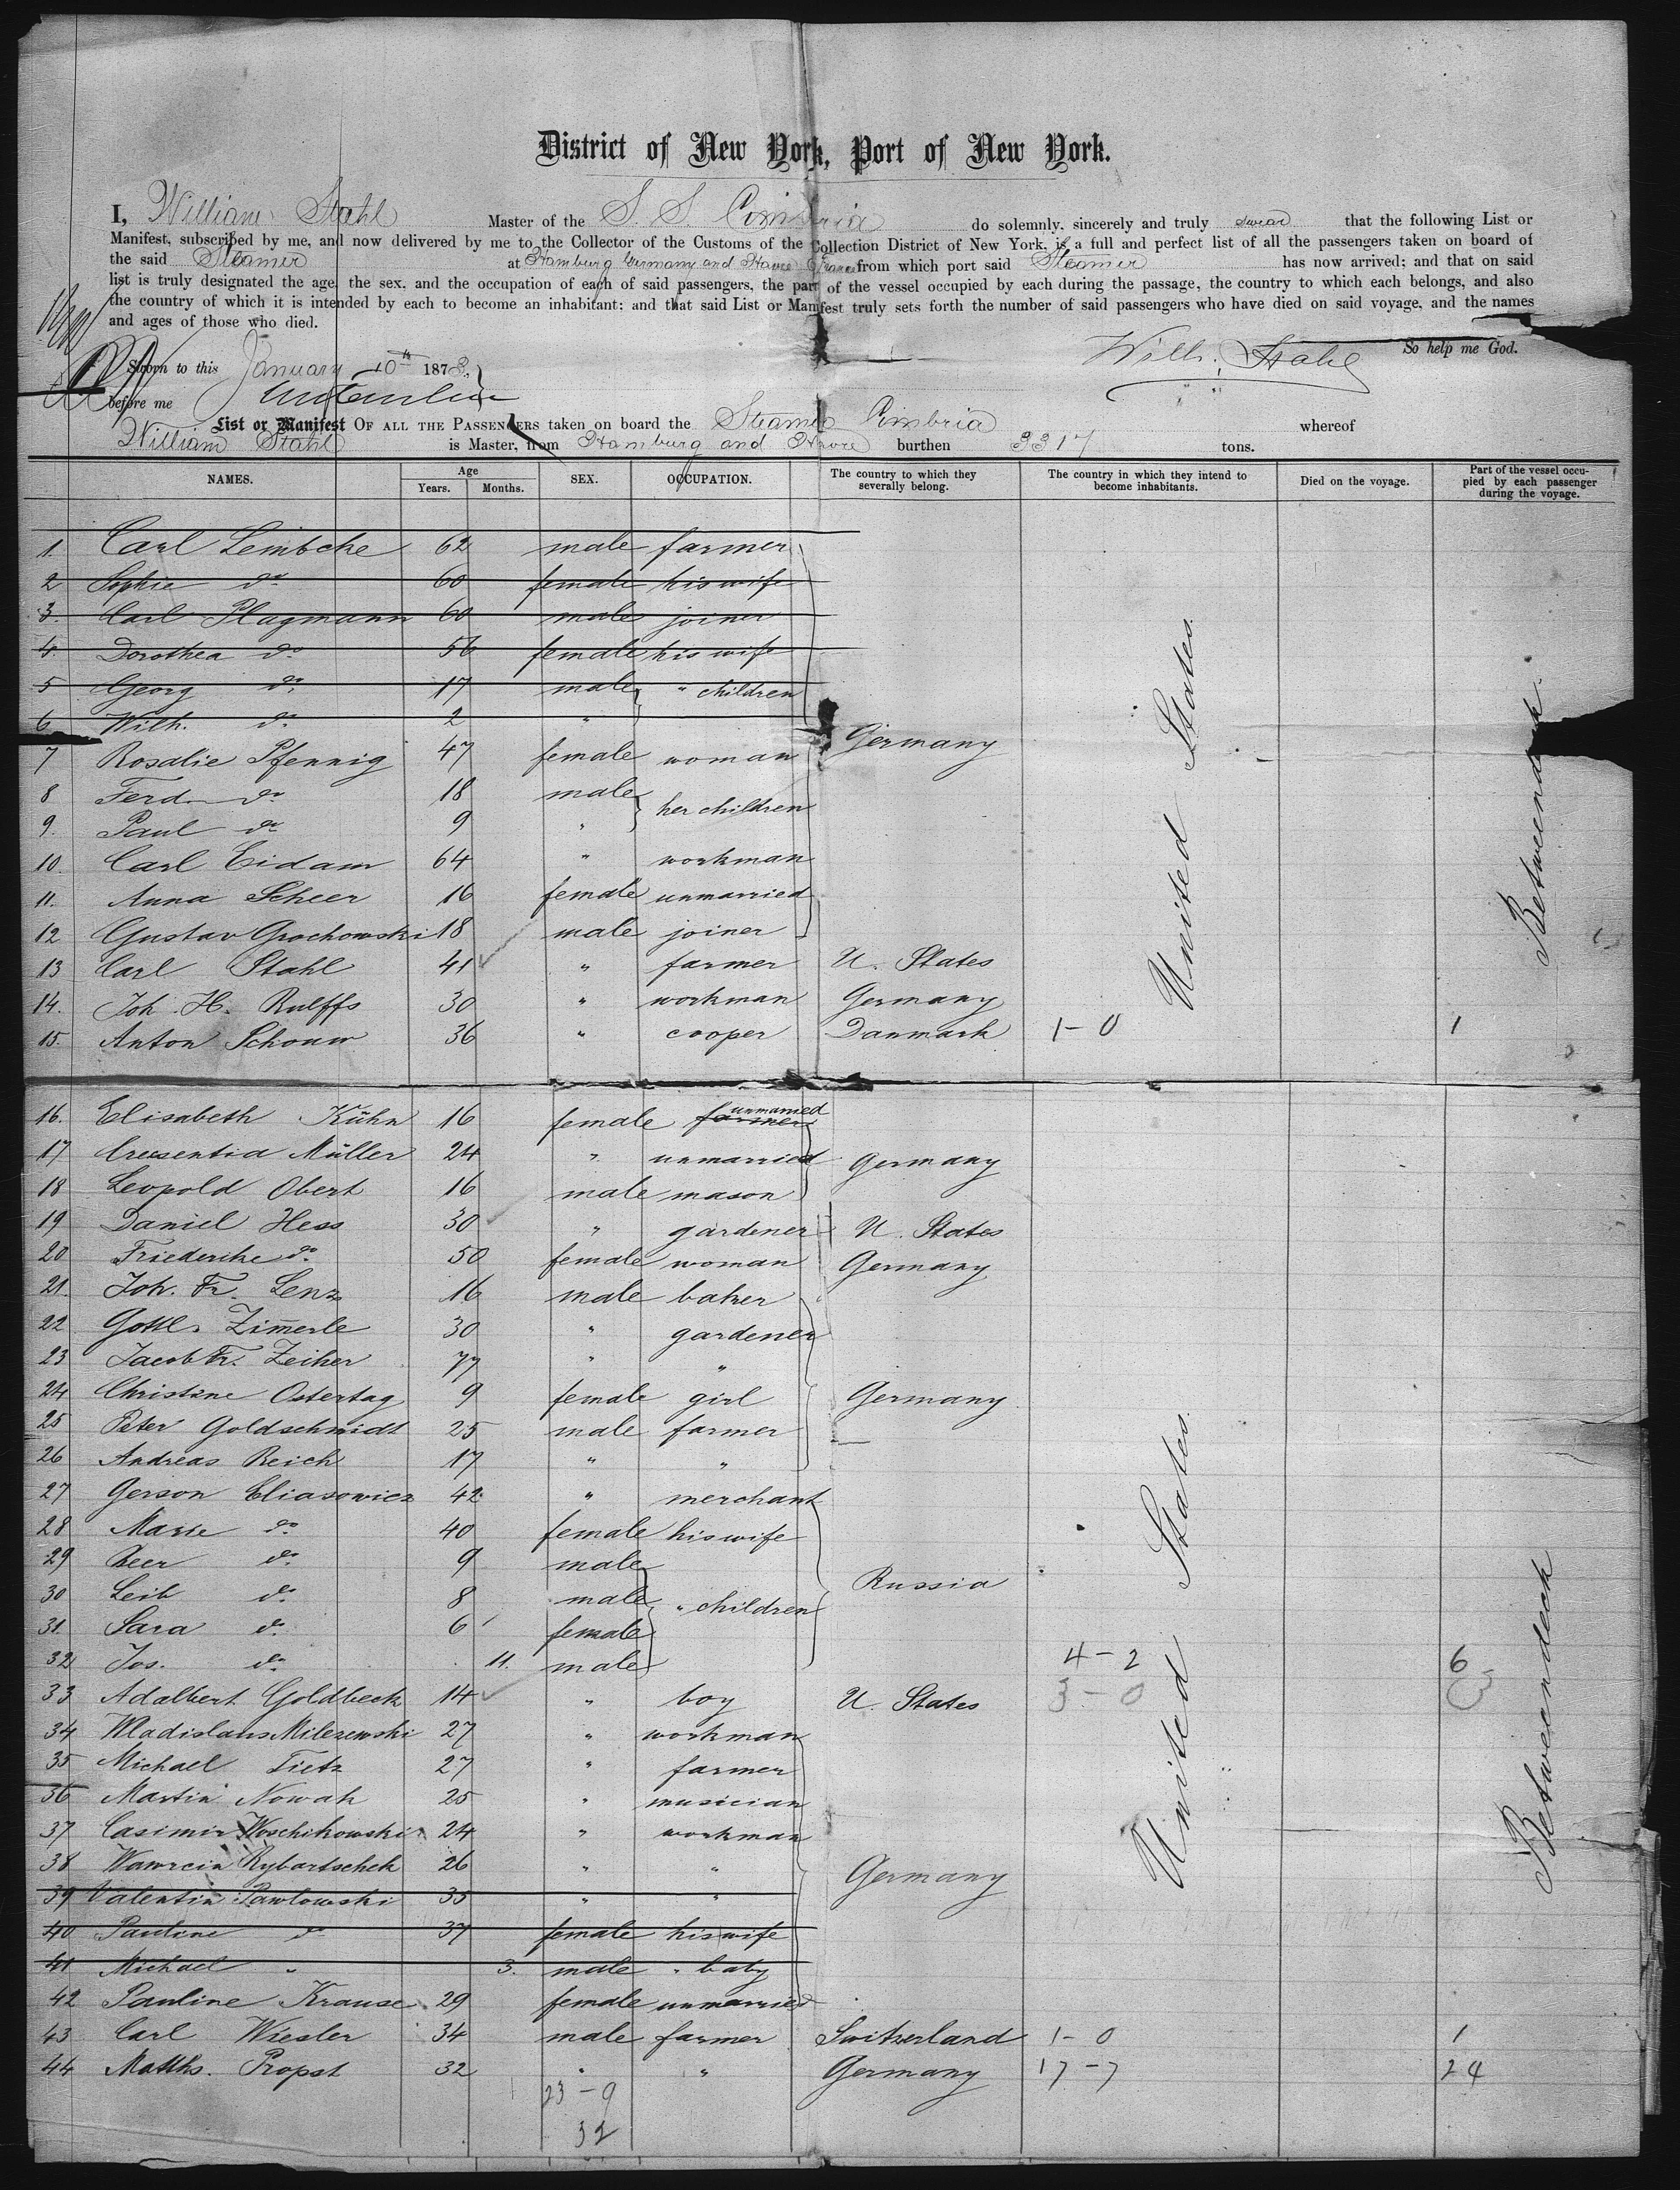 District of New York, Port of New York.
I, William Stahl Master of the S. S. Cimbria do solemnly, sincerely and truly swear that the following List or
Manifest, subscribed by me, and now delivered by me to the Collector of the Customs of the Collection District of New York, is a full and perfect list of all the passengers taken on board of
the said Steamer at Hamburg Germany and Havre France from which port said Steamer has now arrived; and that on said
list is truly designated the age, the sex, and the occupation of each of said passengers, the part of the vessel occupied by each during the passage, the country to which each belongs, and also
the country of which it is intended by each to become an inhabitant; and that said List or Manifest truly sets forth the number of said passengers who have died on said voyage, and the names
and ages of those who died.
Wilh. Stahl So help me God.
Sworn to this January 10th 1878.
before me
List or Manifest OF ALL THE PASSENGERS taken on board the Steamer Cimbria whereof
William Stahl is Master, from Hamburg and Havre burthen 3317 tons.
NAMES. Age Years. Months. SEX. OCCUPATION. The country to which they severally belong. The country in which they intend to become inhabitants. Died on the voyage. Part of the vessel occupied by each passenger during the voyage.
1. Carl Lembcke 62 male farmer
2 Sophie do 60 female his wife
3. Carl Plagmann 60 male joiner
4. Dorothea do 56 female his wife
5 Georg do 17 male " children
6 Wilh. do 2 "
7 Rosalie Pfennig 47 female woman Germany
8 Ferd. do 18 male her children
9. Paul do 9 "
10. Carl Eidam 64 " workman
11. Anna Scheer 16 female unmarried
12 Gustav Grochowski 18 male joiner
13 Carl Stahl 41 " farmer U. States
14. Joh. H. Rulffs 30 " workman Germany
15. Anton Schouw 36 " cooper Danmark 1-0 1
United States
Betweendeck.
16. Elisabeth Kühn 16 female farmer unmarried
17 Crescentia Müller 24 " unmarried Germany
18 Leopold Obert 16 male mason
19 Daniel Hess 30 " gardener U. States
20 Friedericke do 50 female woman Germany
21. Joh. Fr. Lenz 16 male baker
22 Gottl. Zimerle 30 " gardener
23 Jacob Fr. Zeiher 77 " "
24 Christine Ostertag 9 female girl Germany
25 Peter Goldschmidt 25 male farmer
26 Andreas Reich 17 " "
27 Gerson Eliasowicz 42 " merchant
28 Marie do 40 female his wife
29 Beer do 9 male
30 Leib do 8 male " children Russia
31. Sara do 6 female
32 Jos. do 11. male 4-2 6
33 Adalbert Goldbeck 14 " boy U. States 3-0 3
34 Wladislaus Milezewski 27 " workman
35 Michael Tietz 27 " farmer
36 Martin Nowak 25 " musician
37 Casimir Woschikowski 24 " workman
38 Wawrcin Rybartschek 26 " " Germany
39 Valentin Pawlowski 35 " "
40 Pauline do 37 female his wife
41 Michael " 3. male " baby
42 Pauline Krause 29 female unmarried
43 Carl Wiesler 34 male farmer Switzerland 1-0 1
44 Matths. Propst 32 " " Germany 17-7 24
23-9
32
United States
Betweendeck